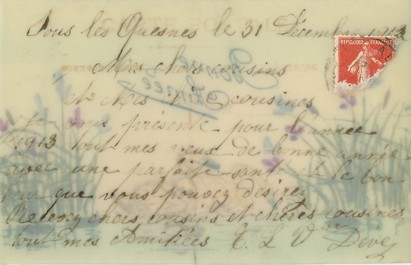 Tous les Quesnes le 31 Décembre 1913
Mes chers cousins
et Mes cousines
vous présente pour l'année
1913 tout mes veux de bonne année
avec une parfaite santé et le bon
que vous pouvez désirer
Recevez chers cousins et chères cousines
tout mes Amitiées E L Ve Deve
Bonne
Année